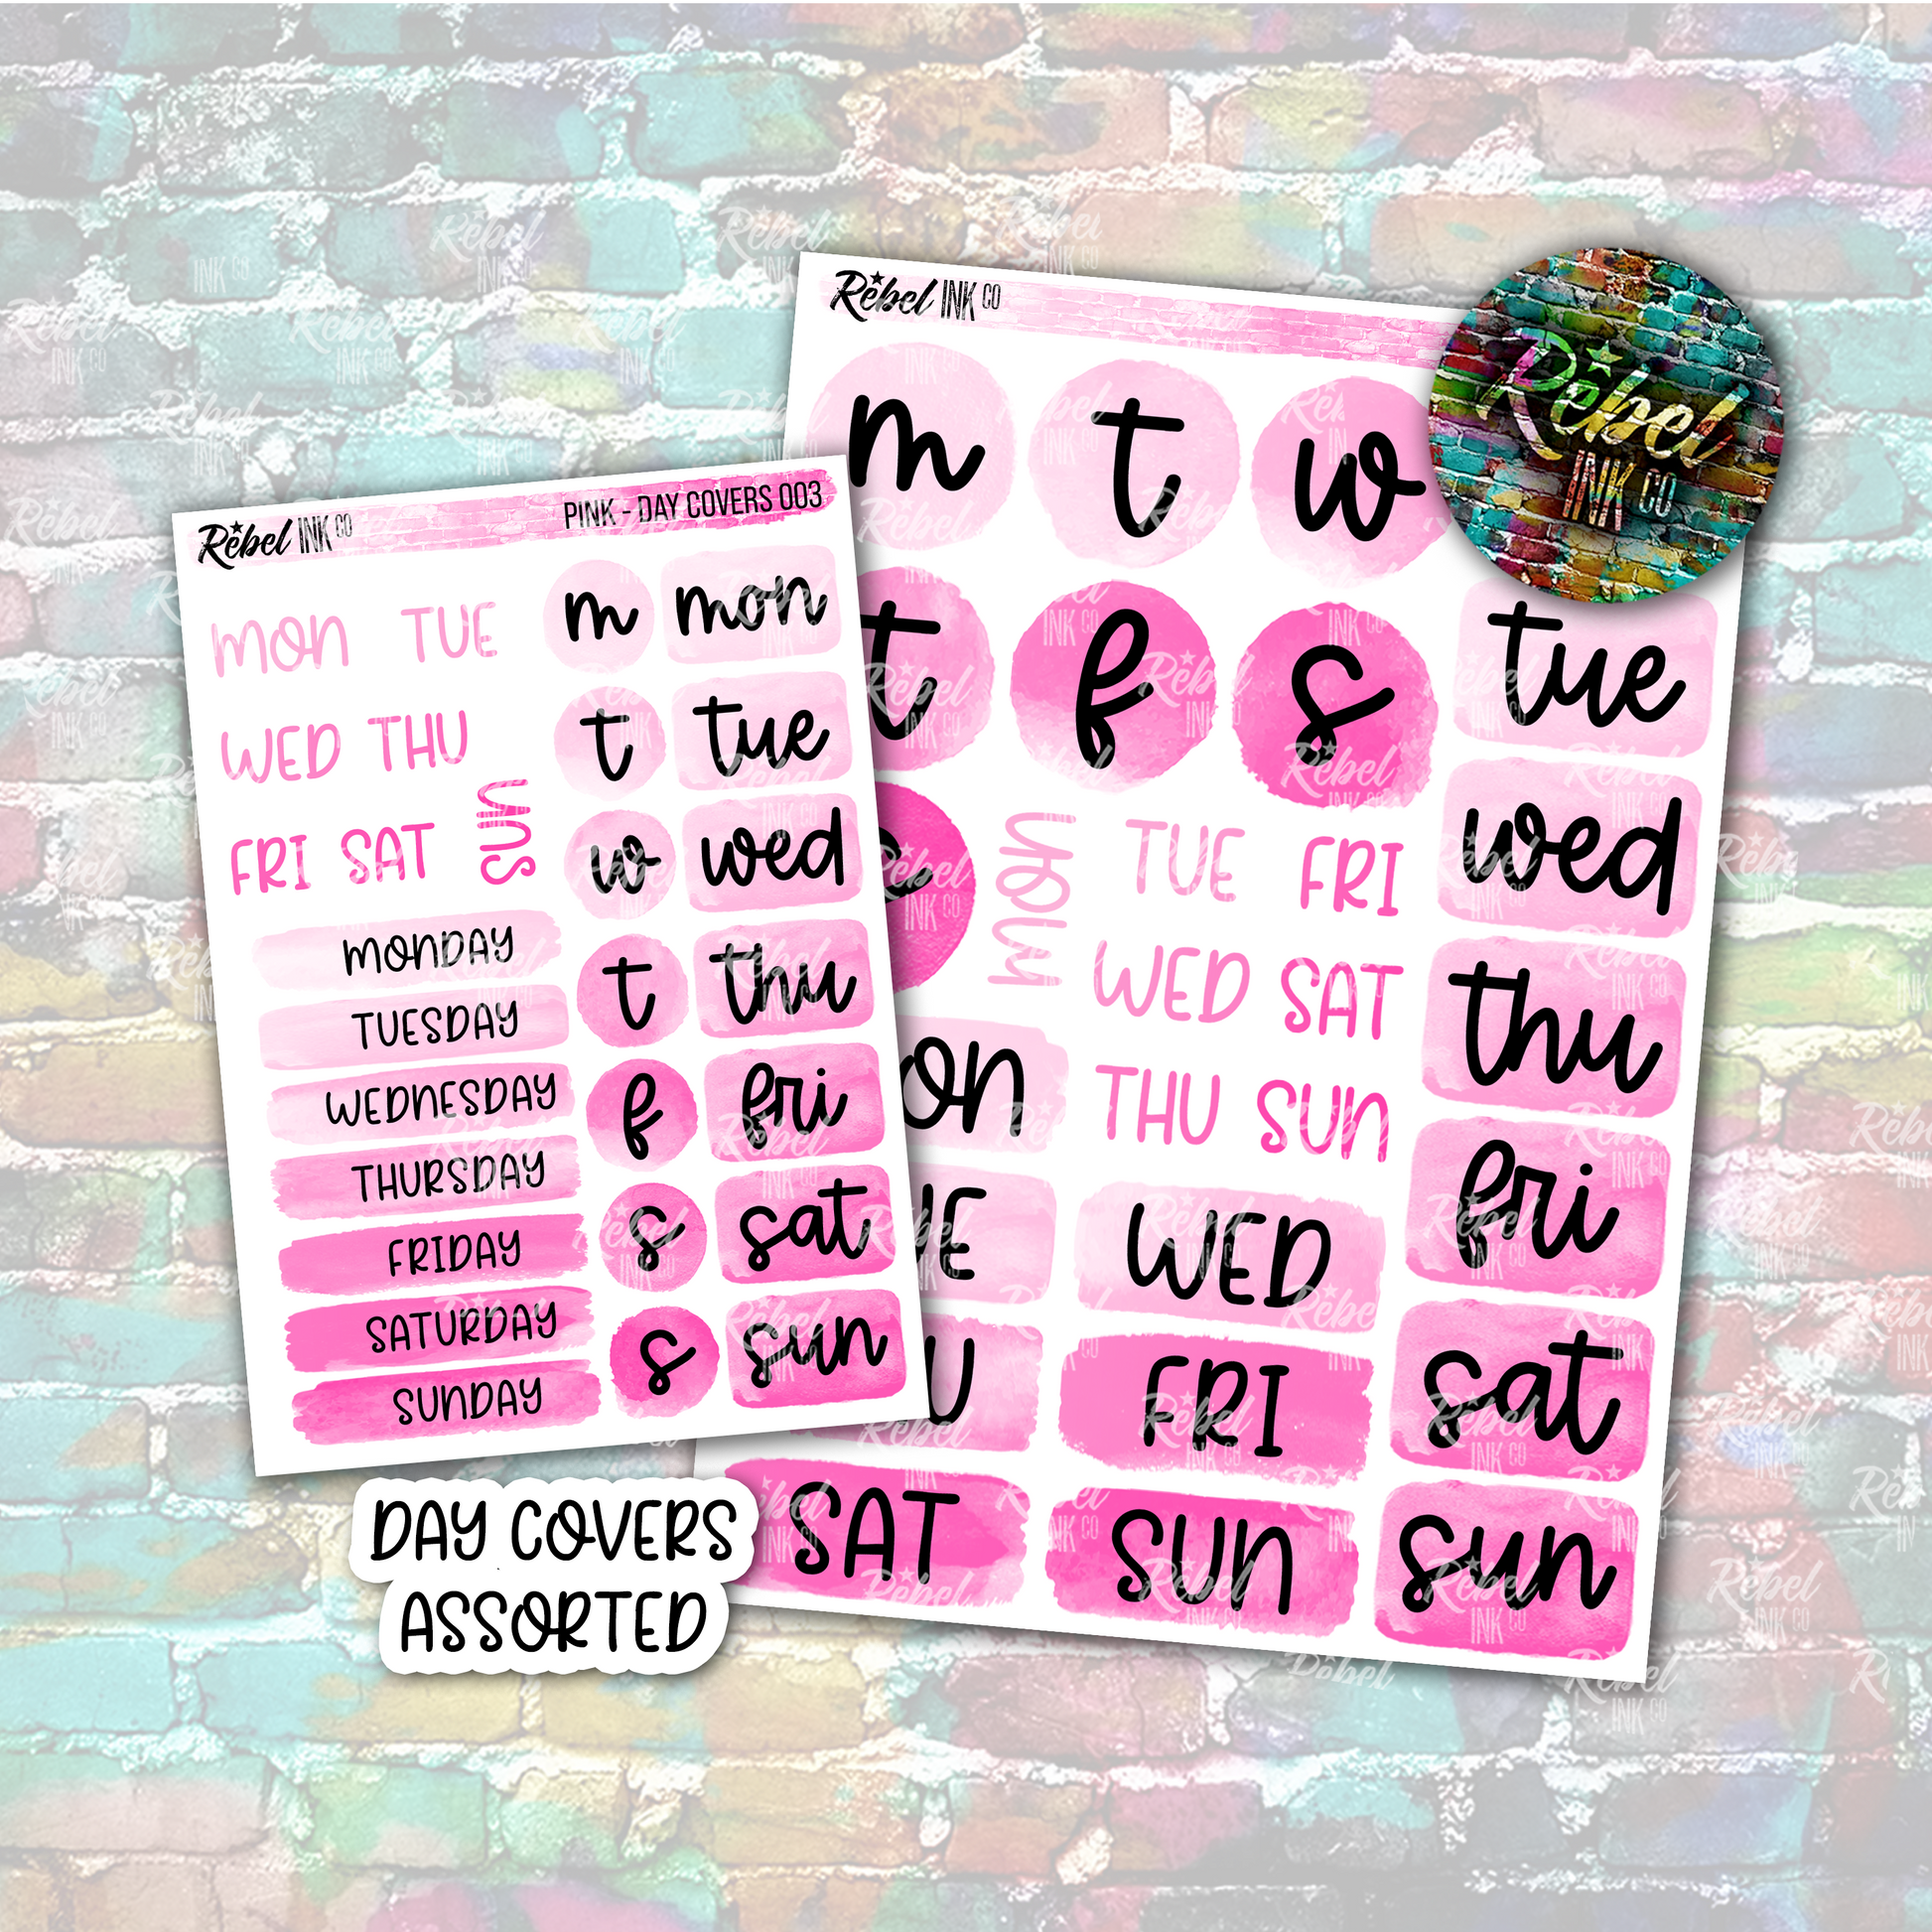 Rebel INK CO
PINK - DAY COVERS 003
MON TUE
WED THU
SUN
FRI SAT
MONDAY
TUESDAY
WEDNESDAY
THURSDAY
FRIDAY
SATURDAY
SUNDAY
m mon
t tue
w wed
t thu
f fri
s sat
s sun
Rebel INK CO
m t w
t f s
MON
TUE FRI
WED SAT
THU SUN
on
E WED
U FRI
SAT SUN
tue
wed
thu
fri
sat
sun
Rebel
INK CO
DAY COVERS
ASSORTED